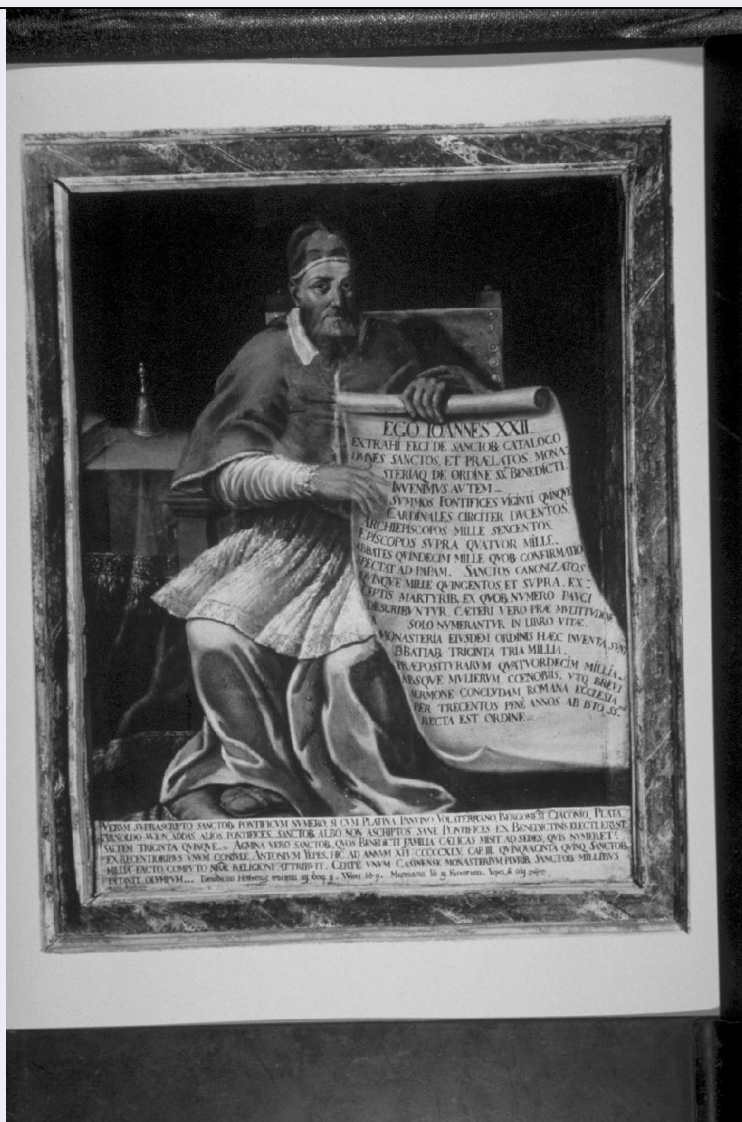 EGO IOANNES XXII.
EXTRAHI FECI DE SANCTOR. CATALOGO
OMNES SANCTOS, ET PRÆLATOS, MONA-
STERIAQ DE ORDINE SS. BENEDICTI.
INVENIMVS AVTEM
SVMMOS PONTIFICES VIGINTI QVINQVE
CARDINALES CIRCITER DVCENTOS.
ARCHIEPISCOPOS MILLE SEXCENTOS.
EPISCOPOS SVPRA QVATVOR MILLE.
ABBATES QVINDECIM MILLE QVOR. CONFIRMATIO
SPECTAT AD PAPAM. SANCTOS CANONIZATOS
QVINQVE MILLE QVINGENTOS ET SVPRA, EX-
CEPTIS MARTYRIB. EX QVOR. NVMERO PAVCI
DESCRIBVNTVR, CÆTERI VERO PRÆ MVLTITVDINE
SOLO NVMERANTVR IN LIBRO VITÆ.
MONASTERIA EIVSDEM ORDINIS HÆC INVENTA SVNT
BBATIAR. TRIGINTA TRIA MILLIA.
PRÆPOSITVRARVM QVATVORDECIM MILLIA.
ABSQVE MVLIERVM CŒNOBIIS. VTQ BREVI
SERMONE CONCLVDAM, ROMANA ECCLESIA
PER TRECENTOS PENE ANNOS AB ISTO SS.
RECTA EST ORDINE
VERVM SVPRASCRIPTO SANCTOR. PONTIFICVM NVMERO SI CVM PLATINA PANVINO VOLATERRANO BERGOMENSI CIACONIO, PLATA
ARNOLDO WION ADDAS ALIOS PONTIFICES SANCTOR. ALBO NON ASCRIPTOS SANE PONTIFICES EX BENEDICTINIS ELECTI ERVNT
SALTEM TRIGINTA QVINQVE. AGMINA VERO SANCTOR. QVOS BENEDICTI FAMILIA CÆLICAS MISIT AD SEDES, QVIS NVMERET?
EX RECENTIORIBVS VNVM CONSVLE ANTONIVM YEPES, HIC AD ANNVM XPI CAP. III. QVINQVAGINTA QVINQ SANCTOR.
MILLIA FACTO COMPVTO NRÆ RELIGIONI ATTRIBVIT. CERTE VNVM CASINENSE MONASTERIVM PLVRIB. SANCTOR. MILLIBVS
DITAVIT OLYMPVM. Wion lib 9. Yepes